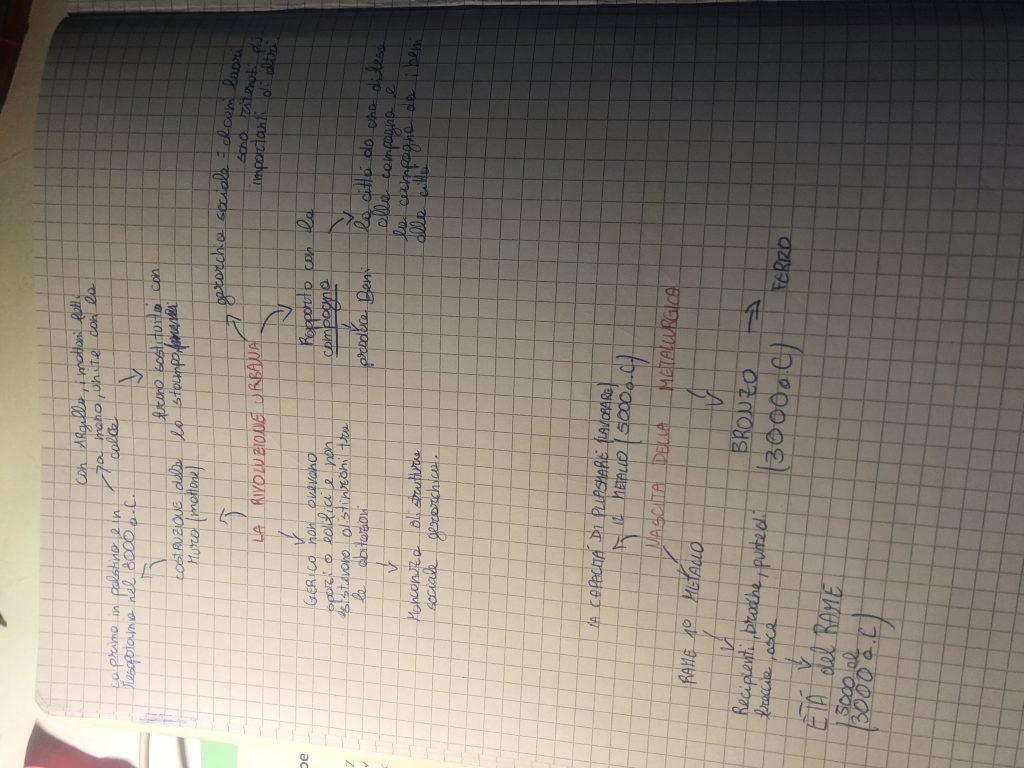 con ARgilla, i mattoni fatti
a mano, unite con la
colla
La prima in palestina e in
Mesopotamia nel 8000 a.C.
COSTRUZIONE delle
Mura (mattoni)
furono sostituiti con
lo stampo
gerarchia sociale = alcuni lavori
sono ritenuti più
importanti di altri
LA RIVOLUZIONE URBANA
GERICO non avevano
opazi o edifici e non
esistevano distinzioni tra
le abitazioni
Mananza di strutture
sociale gerarchica.
Rapporto con la
campagna
predica Beni
la città da una difesa
alle campagne e
la campagna da i beni
alle città
LA CAPACITÀ DI PLASMARE (LAVORARE)
IL METALLO (5000 a.C)
NASCITA DELLA METALLURGICA
RAME 1° METALLO
Recipienti, brocche, punte di
freccie, asce
ETÁ del RAME
(5000 al
3000 a.C)
BRONZO
(3000 a.C)
FERRO